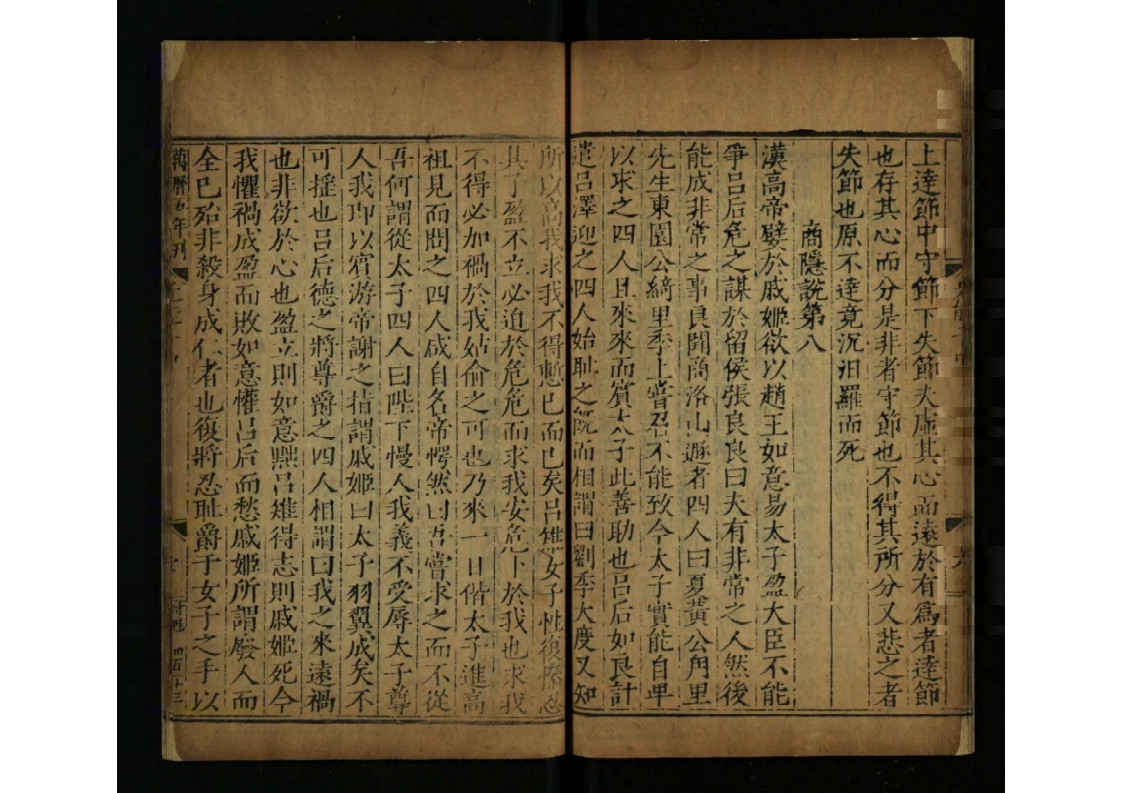 上達節中守節下失節夫虛其心而遠於有爲者達節
也存其心而分是非者守節也不得其所分又悲之者
失節也原不達竟沉汨羅而死
商隱說第八
漢高帝嬖於戚姬欲以趙王如意易太子盈大臣不能
爭呂后危之謀於留侯張良良曰夫有非常之人然後
能成非常之事良聞商洛山遯者四人曰夏黃公甪里
先生東園公綺里季上嘗召不能致今太子實能自卑
以求之四人且來來而賓太子此善助也呂后如良計
遣呂澤迎之四人始恥之旣而相謂曰劉季大度又知
所以高我求我不得慙已而已矣呂雉女子性復慘忍
其子盈不立必迫於危危而求我安危卜於我也求我
不得必加禍於我姑俞之可也乃來一日偕太子進高
祖見而問之四人咸自名帝愕然曰吾嘗求之而不從
吾何謂從太子四人曰陛下慢人我義不受辱太子尊
人我卽以賓游帝謝之指謂戚姬曰太子羽翼成矣不
可摇也呂后德之將尊爵之四人相謂曰我之來遠禍
也非欲於心也盈立則如意黜呂雉得志則戚姬死今
我懼禍成盈而敗如意懽呂后而愁戚姬所謂廢人而
全已殆非殺身成仁者也復將忍恥爵于女子之手以
萬曆五年刊
四百十三